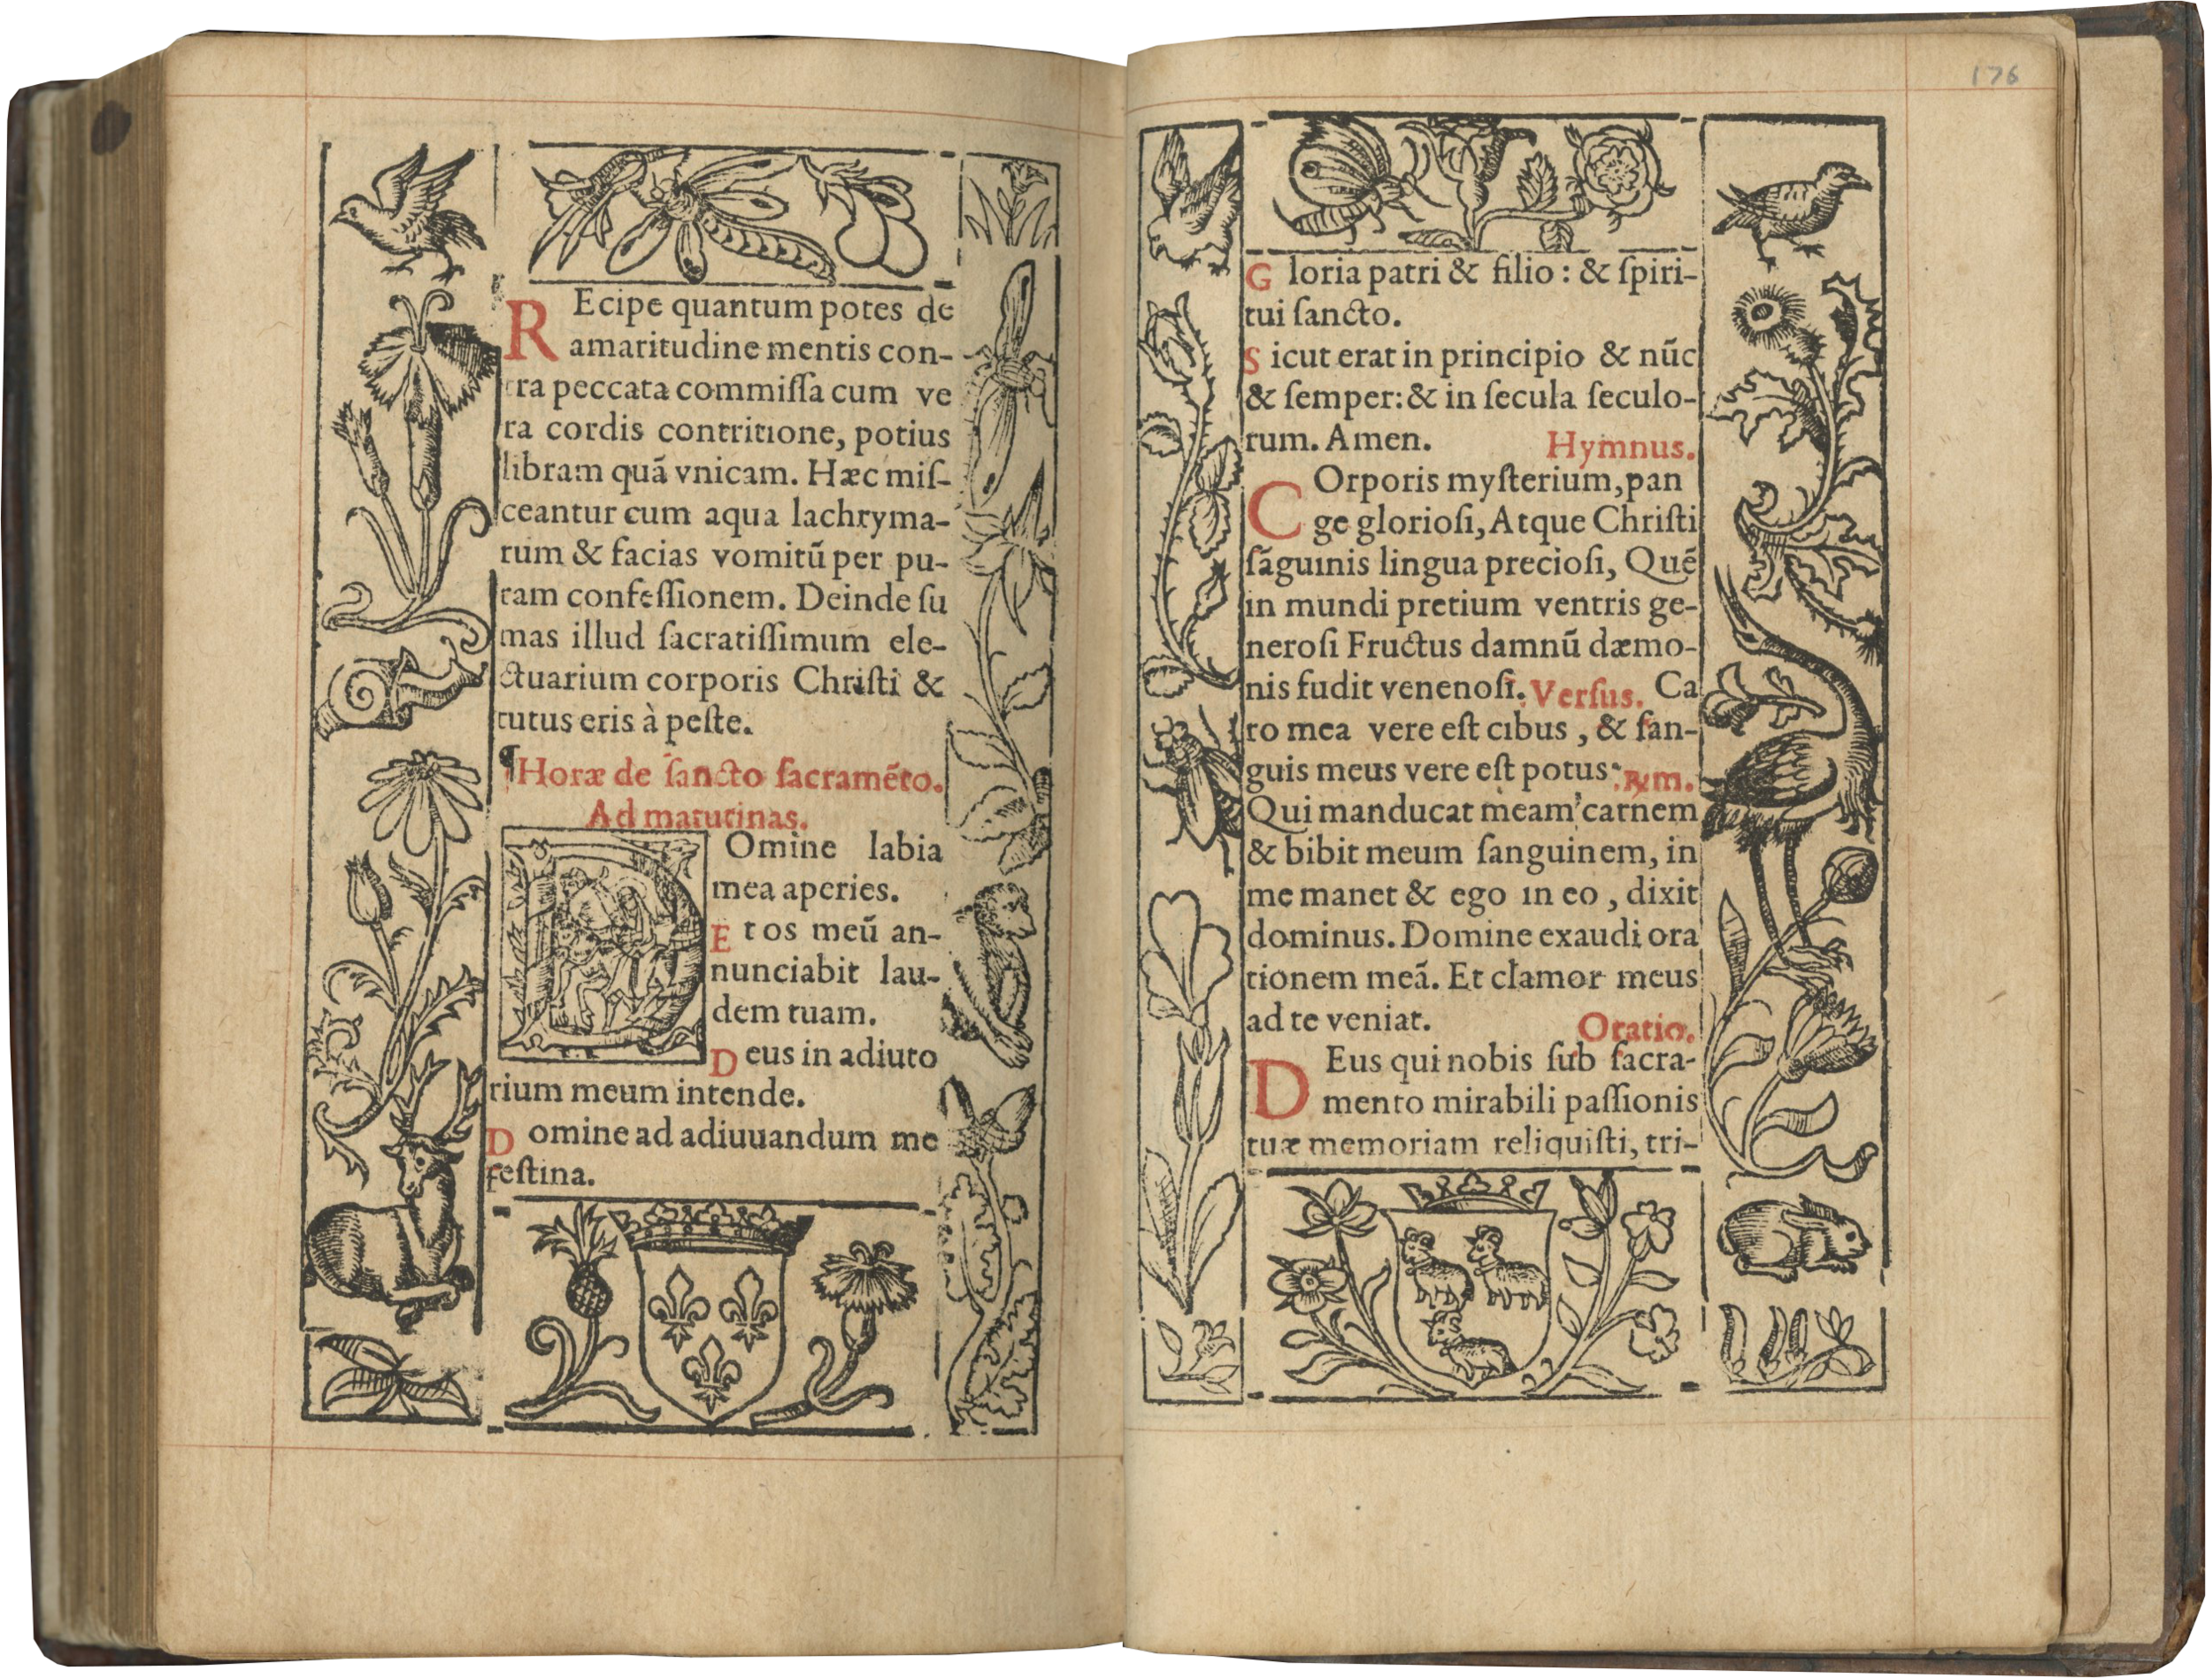 REcipe quantum potes de
amaritudine mentis con-
tra peccata commiſſa cum ve
ra cordis contritione, potius
libram quã vnicam. Hæc miſ-
ceantur cum aqua lachryma-
rum & facias vomitũ per pu-
ram confeſſionem. Deinde ſu
mas illud ſacratiſſimum ele-
ctuarium corporis Chriſti &
tutus eris à peſte.
¶Horæ de ſancto ſacramẽto.
Ad matutinas.
Omine labia
mea aperies.
Et os meũ an-
nunciabit lau-
dem tuam.
Deus in adiuto
rium meum intende.
Domine ad adiuuandum me
feſtina.
176
Gloria patri & filio: & ſpiri-
tui ſancto.
Sicut erat in principio & nũc
& ſemper: & in ſecula ſeculo-
rum. Amen. Hymnus.
COrporis myſterium, pan
ge glorioſi, Atque Chriſti
ſãguinis lingua precioſi, Quẽ
in mundi pretium ventris ge-
neroſi Fructus damnũ dæmo-
nis fudit venenoſi. Verſus. Ca
ro mea vere eſt cibus, & ſan-
guis meus vere eſt potus. ℟m.
Qui manducat meam carnem
& bibit meum ſanguinem, in
me manet & ego in eo, dixit
dominus. Domine exaudi ora
tionem meã. Et clamor meus
ad te veniat. Oratio.
DEus qui nobis ſub ſacra-
mento mirabili paſſionis
tuæ memoriam reliquiſti, tri-